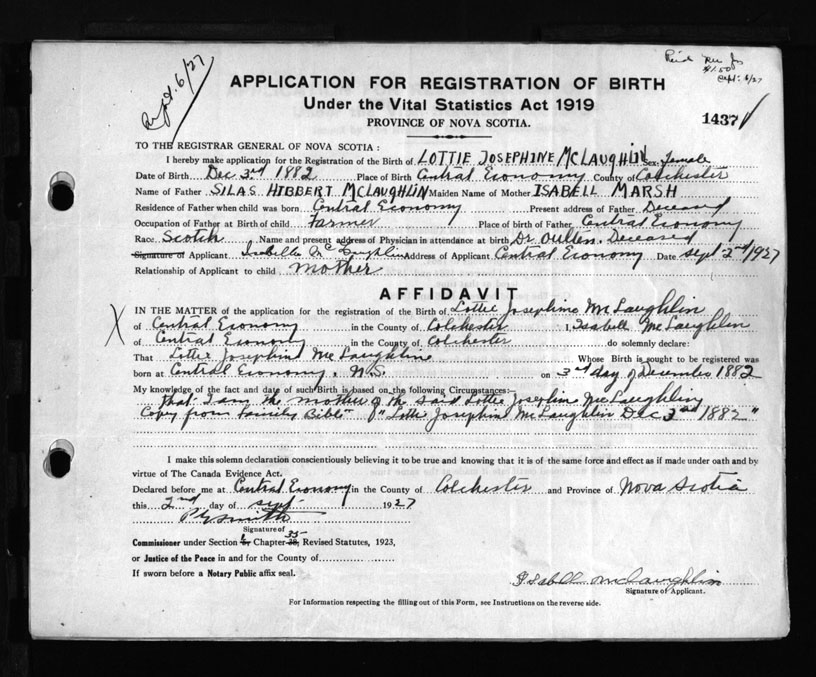 Sept. 6/27
$1.50
Sept: 6/27
APPLICATION FOR REGISTRATION OF BIRTH
Under the Vital Statistics Act 1919
PROVINCE OF NOVA SCOTIA.
1437
TO THE REGISTRAR GENERAL OF NOVA SCOTIA :
I hereby make application for the Registration of the Birth of LOTTIE JOSEPHINE MCLAUGHLIN Sex Female
Date of Birth Dec 3rd 1882 Place of Birth Central Economy County of Colchester
Name of Father SILAS HIBBERT MCLAUGHLIN Maiden Name of Mother ISABELL MARSH
Residence of Father when child was born Central Economy Present address of Father Deceased
Occupation of Father at Birth of child Farmer Place of birth of Father Central Economy
Race Scotch Name and present address of Physician in attendance at birth Dr. Oulton. Deceased
Signature of Applicant Isabella McLaughlin Address of Applicant Central Economy Date Sept 2nd 1927
Relationship of Applicant to child mother
AFFIDAVIT
IN THE MATTER of the application for the registration of the Birth of Lottie Josephine McLaughlin
of Central Economy in the County of Colchester I, Isabell McLaughlin
of Central Economy in the County of Colchester do solemnly declare:
That Lottie Josephine McLaughline Whose Birth is sought to be registered was
born at Central Economy. N.S. on 3rd day of December 1882
My knowledge of the fact and date of such Birth is based on the following Circumstances:—
that I am the mother of the said Lottie Josephine McLaughling
Copy from Family Bible "Lottie Josephine McLaughlin Dec 3rd 1882"
I make this solemn declaration conscientiously believing it to be true and knowing that it is of the same force and effect as if made under oath and by
virtue of The Canada Evidence Act.
Declared before me at Central Economy in the County of Colchester and Province of Nova Scotia
this 2nd day of Sept 1927
Signature of
35
Commissioner under Section Chapter 38, Revised Statutes, 1923,
or Justice of the Peace in and for the County of
If sworn before a Notary Public affix seal.
Isabell McLaughlin
Signature of Applicant.
For Information respecting the filling out of this Form, see Instructions on the reverse side.